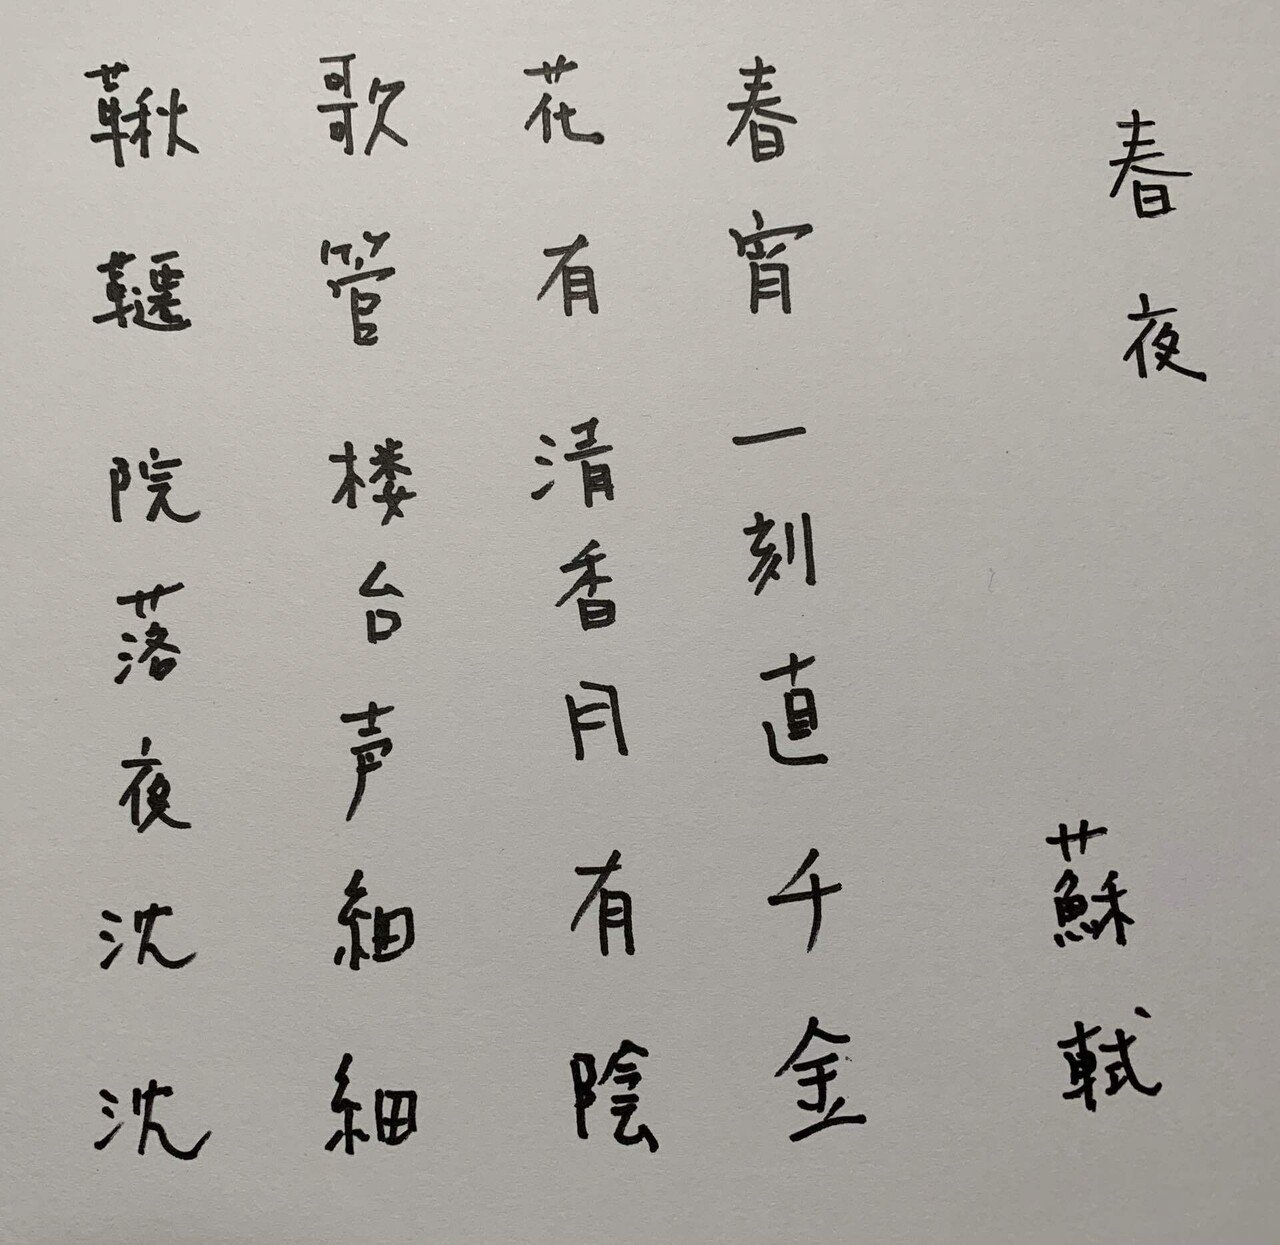 春夜
蘇軾
春宵一刻直千金
花有清香月有陰
歌管楼台声細細
鞦韆院落夜沈沈